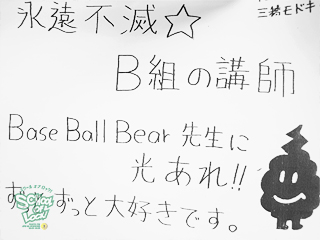 三若モドキ
永遠不滅☆
B組の講師
Base Ball Bear 先生に
光あれ!!
ずっとずっと大好きです。